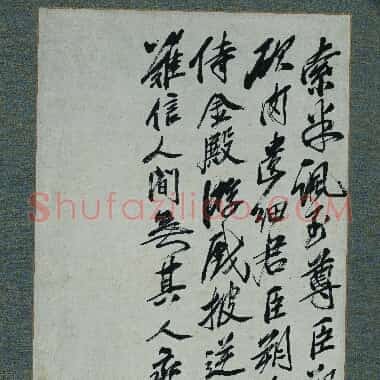 索米諷至尊臣
肉遺細君臣朔
侍金殿游戲披逆
難信人間無其人
Shufaziliao.COM